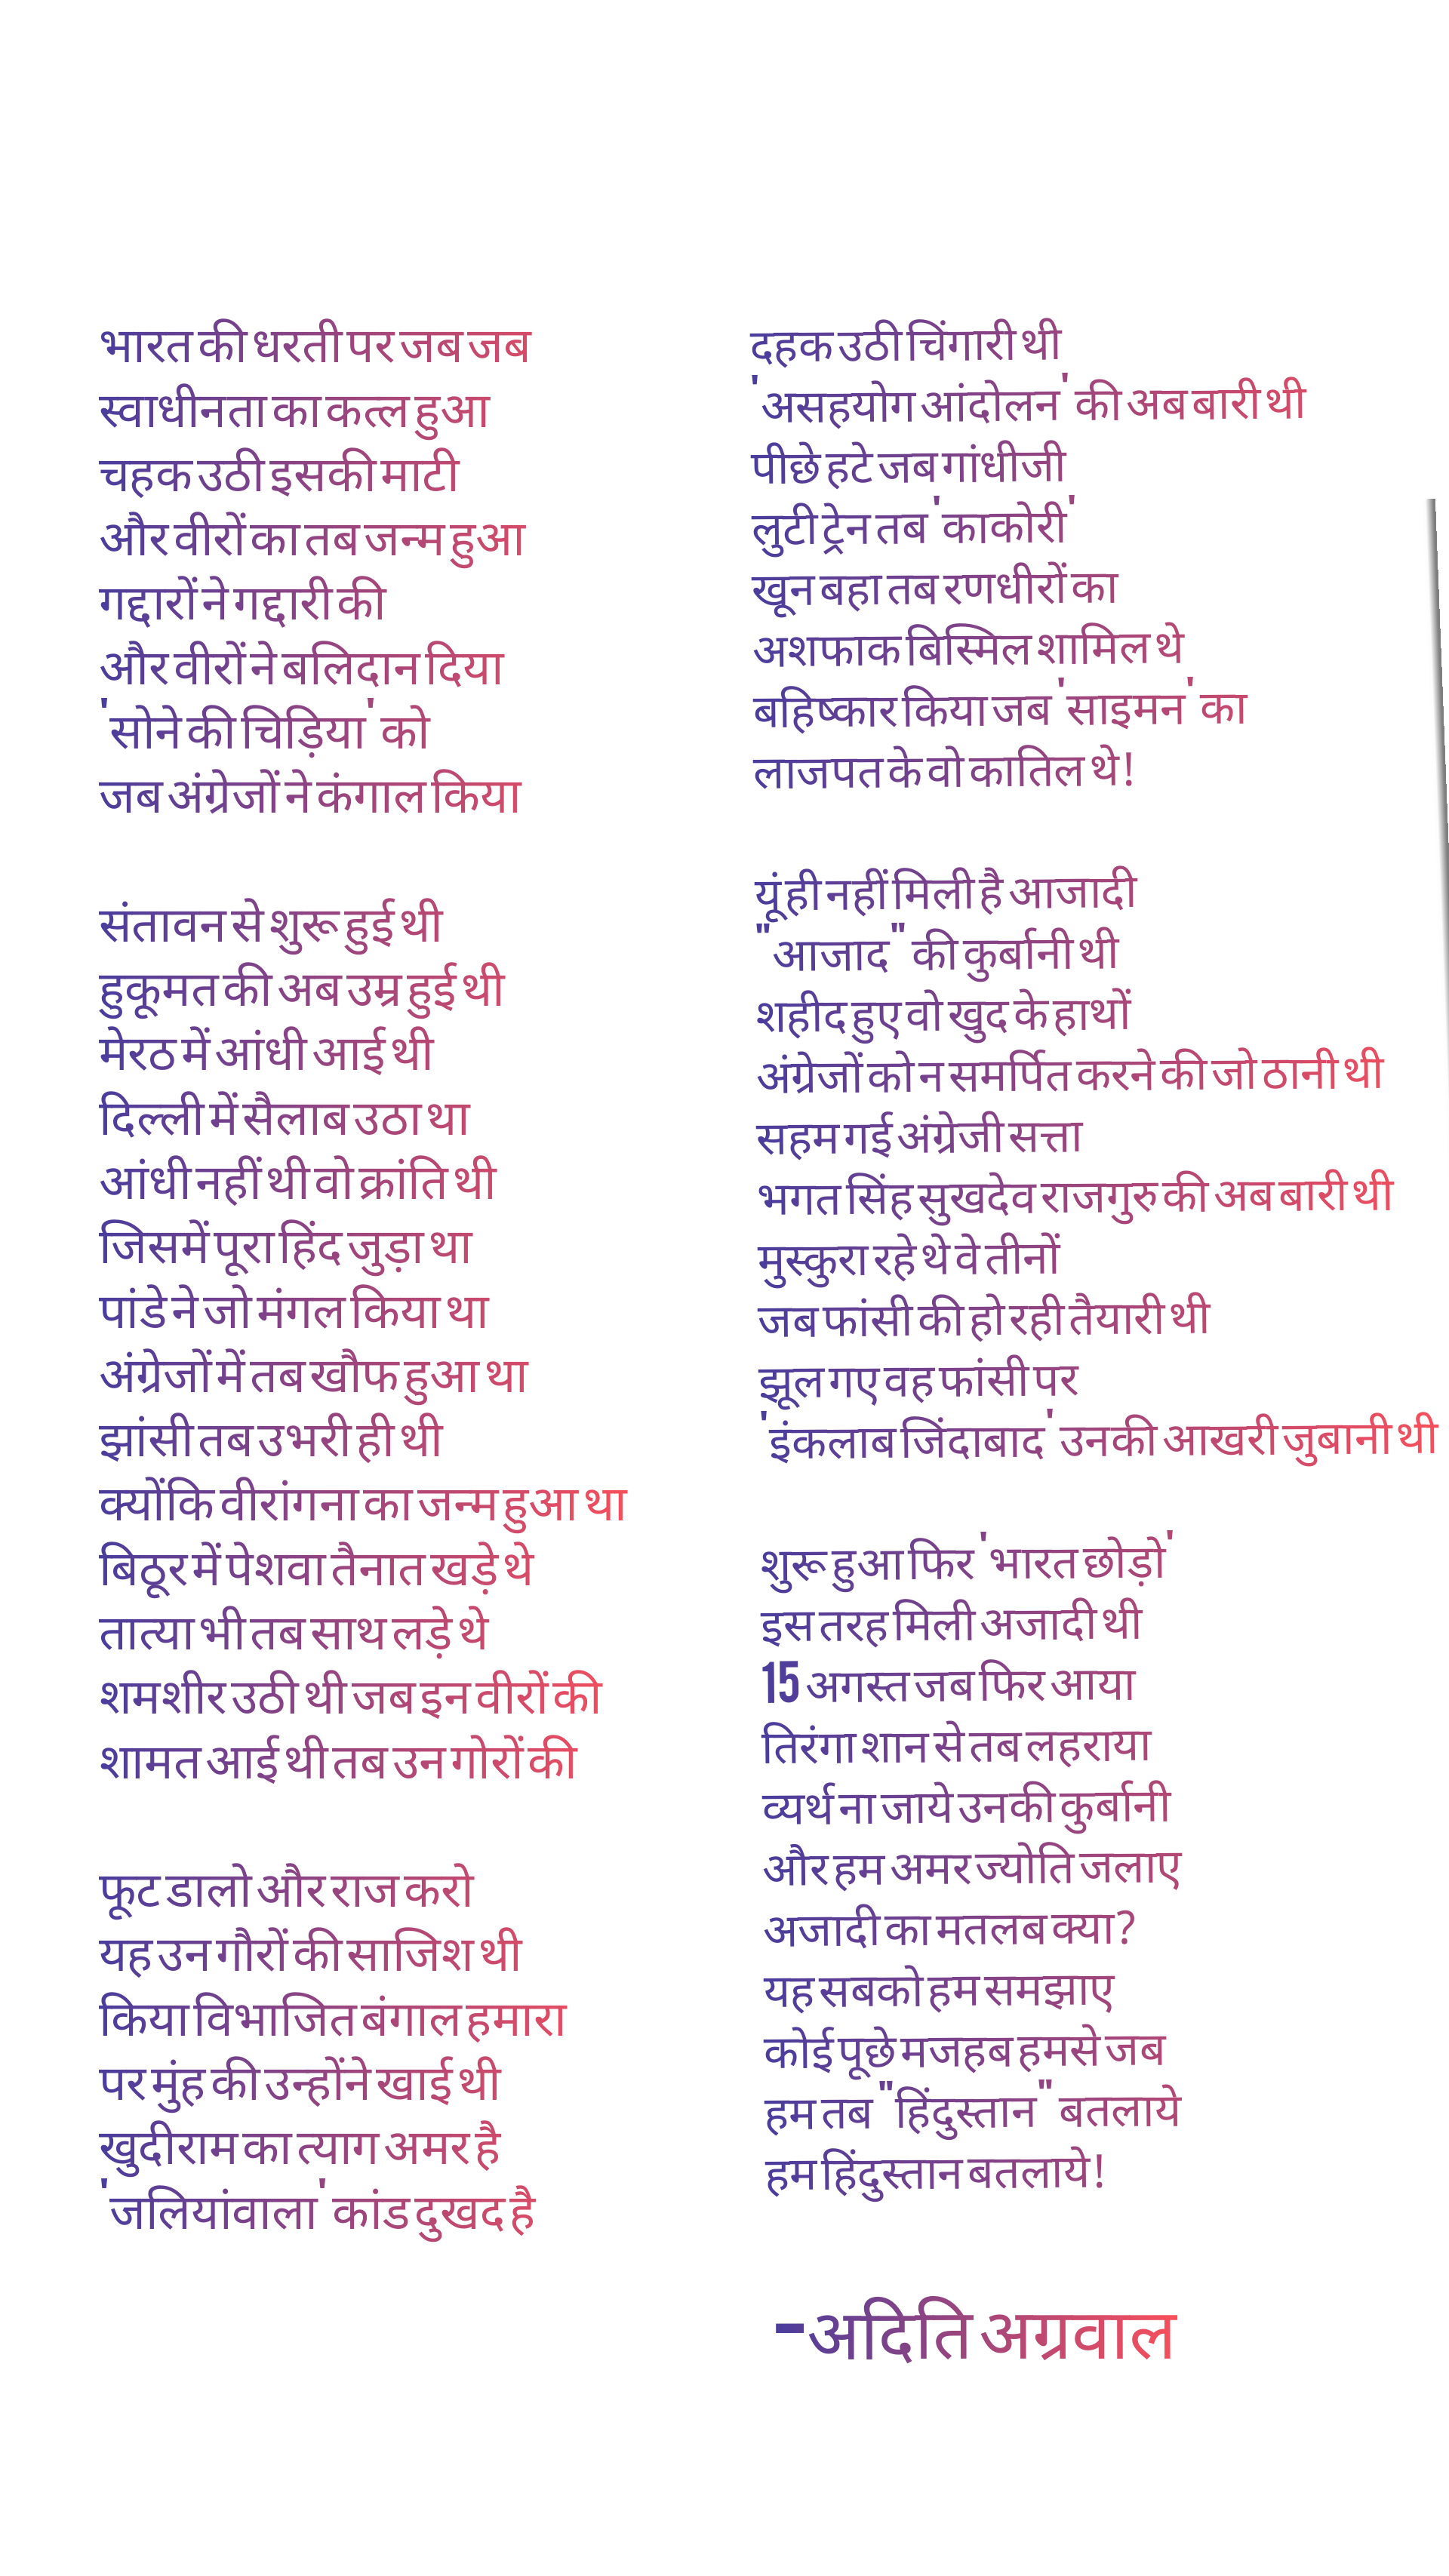 भारत की धरती पर जब जब
स्वाधीनता का कत्ल हुआ
चहक उठी इसकी माटी
और वीरों का तब जन्म हुआ
गद्दारों ने गद्दारी की
और वीरों ने बलिदान दिया
'सोने की चिड़िया' को
जब अंग्रेजों ने कंगाल किया

संतावन से शुरू हुई थी
हुकूमत की अब उम्र हुई थी
मेरठ में आंधी आई थी
दिल्ली में सैलाब उठा था
आंधी नहीं थी वो क्रांति थी
जिसमें पूरा हिंद जुड़ा था
पांडे ने जो मंगल किया था
अंग्रेजों में तब खौफ हुआ था
झांसी तब उभरी ही थी
क्योंकि वीरांगना का जन्म हुआ था
बिठूर में पेशवा तैनात खड़े थे
तात्या भी तब साथ लड़े थे
शमशीर उठी थी जब इन वीरों की
शामत आई थी तब उन गोरों की

फूट डालो और राज करो
यह उन गौरों की साजिश थी
किया विभाजित बंगाल हमारा
पर मुंह की उन्होंने खाई थी
खुदीराम का त्याग अमर है
'जलियांवाला' कांड दुखद है

दहक उठी चिंगारी थी
'असहयोग आंदोलन' की अब बारी थी
पीछे हटे जब गांधीजी
लुटी ट्रेन तब 'काकोरी'
खून बहा तब रणधीरों का
अशफाक बिस्मिल शामिल थे
बहिष्कार किया जब 'साइमन' का
लाजपत के वो कातिल थे!

यूं ही नहीं मिली है आजादी
"आजाद" की कुर्बानी थी
शहीद हुए वो खुद के हाथों
अंग्रेजों को न समर्पित करने की जो ठानी थी
सहम गई अंग्रेजी सत्ता
भगत सिंह सुखदेव राजगुरु की अब बारी थी
मुस्कुरा रहे थे वे तीनों
जब फांसी की हो रही तैयारी थी
झूल गए वह फांसी पर
'इंकलाब जिंदाबाद' उनकी आखरी जुबानी थी

शुरू हुआ फिर 'भारत छोड़ो'
इस तरह मिली अजादी थी
15 अगस्त जब फिर आया
तिरंगा शान से तब लहराया
व्यर्थ ना जाये उनकी कुर्बानी
और हम अमर ज्योति जलाए
अजादी का मतलब क्या?
यह सबको हम समझाए
कोई पूछे मजहब हमसे जब
हम तब "हिंदुस्तान" बतलाये
हम हिंदुस्तान बतलाये!

-अदिति अग्रवाल